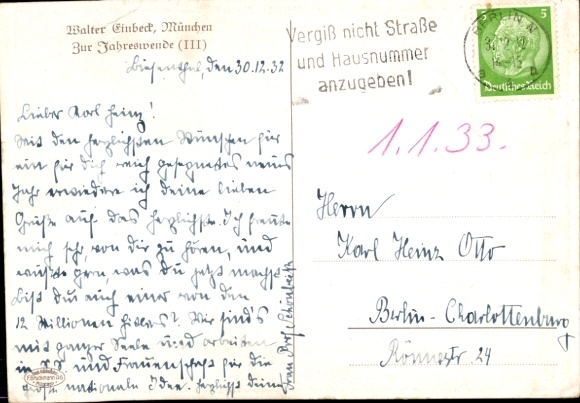 Walter Einbeck, München
Zur Jahreswende (III)
Biesenthal, den 30.12.32
Lieber Karl Heinz!
Mit den herzlichsten Wünschen für
ein für Dich reich gesegnetes neues
Jahr erwidere ich deine lieben
Grüße auf das herzlichste. Ich freute
mich sehr, von dir zu hören, und
wüßte gern, was du jetzt machst.
Bist du auch einer von den
12 Millionen Hitlers? Wir sind's
mit ganzer Seele und arbeiten
in und Frauenschaft für die
große nationale Idee. Herzlichst deine
Frau Prof.
Vergiß nicht Straße
und Hausnummer
anzugeben!
BERLIN N
5
5
Deutsches Reich
1.1.33.
Herrn
Karl Heinz Otto
Berlin-Charlottenburg
Rönnestr. 24